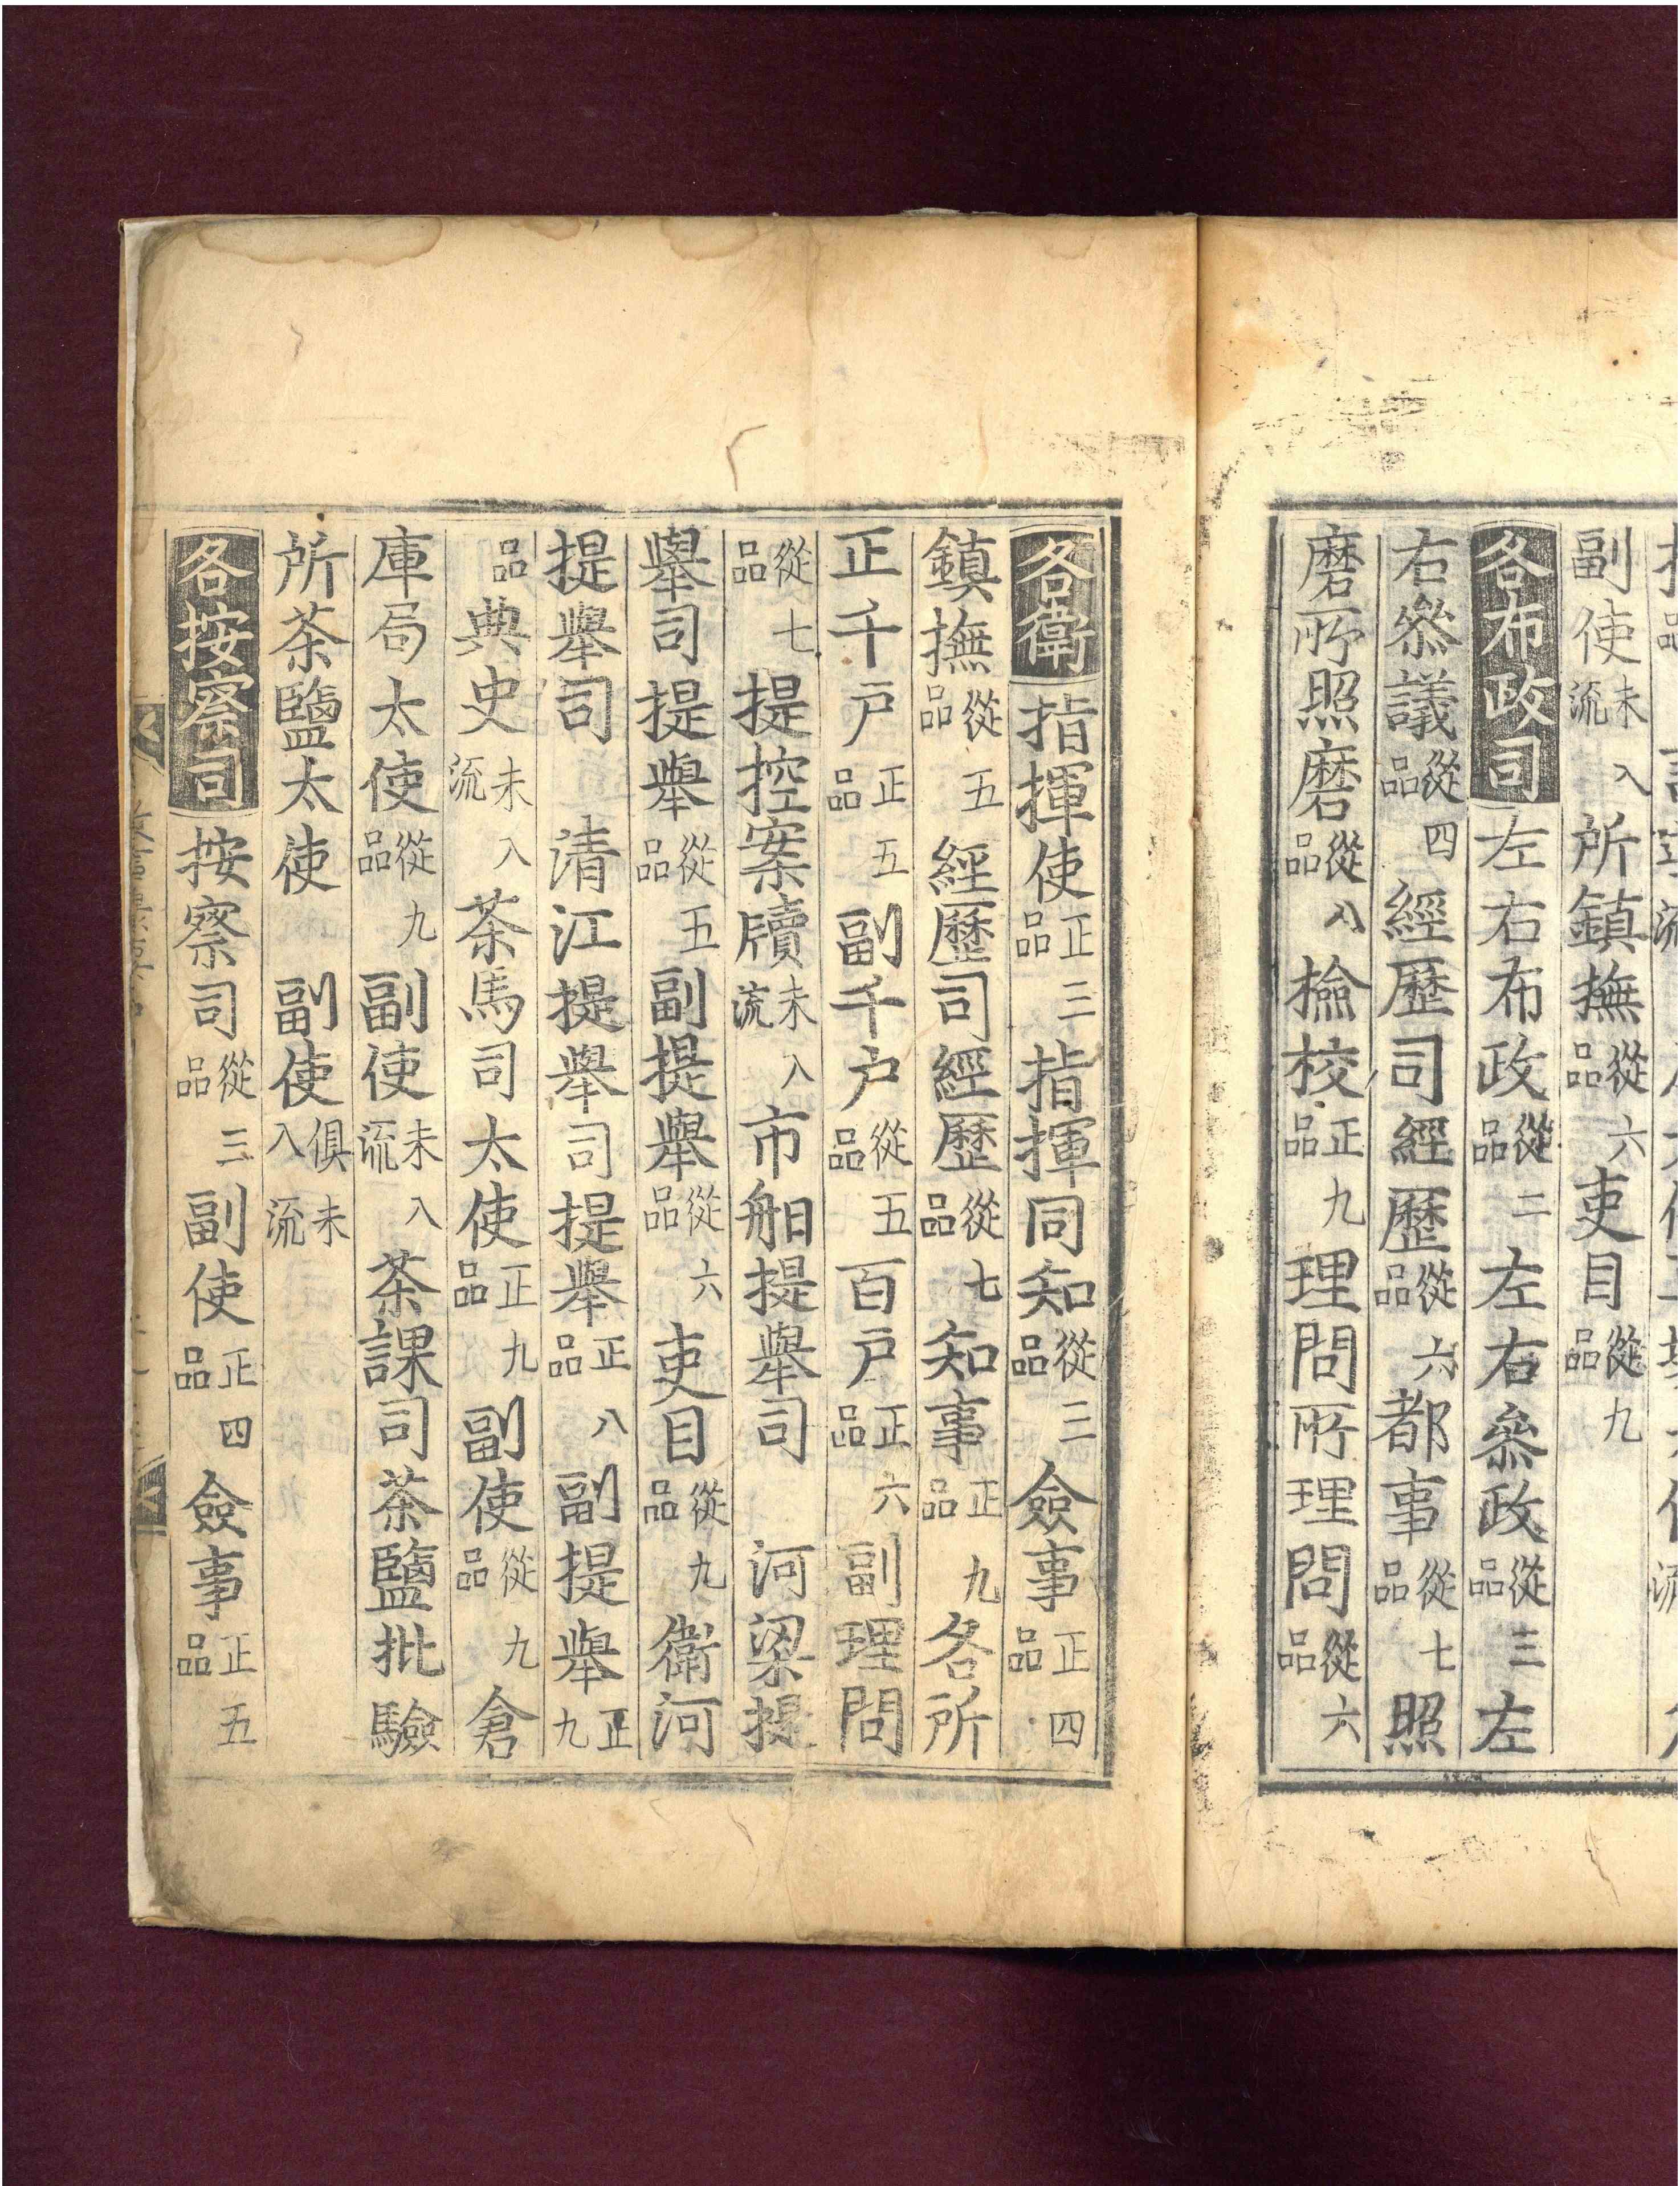 副使未入流所鎮撫從六品吏目從九品
各布政司左右布政從二品左右叅政從三品左
右叅議從四品經歷司經歷從六品都事從七品照
磨所照磨從八品檢校正九品理問所理問從六品
各衛指揮使正三品指揮同知從三品僉事正四品
鎮撫從五品經歷司經歷從七品知事正九品各所
正千戶正五品副千戶從五品百戶正六品副理問
從七品提控案牘未入流市舶提舉司 河梁提
舉司提舉從五品副提舉從六品吏目從九品衛河
提舉司 清江提舉司提舉正八品副提舉正九
品典史未入流茶馬司太使正九品副使從九品倉
庫局太使從九品副使未入流茶課司茶鹽批驗
所茶鹽太使 副使俱未入流
各按察司按察司從三品副使正四品僉事正五品